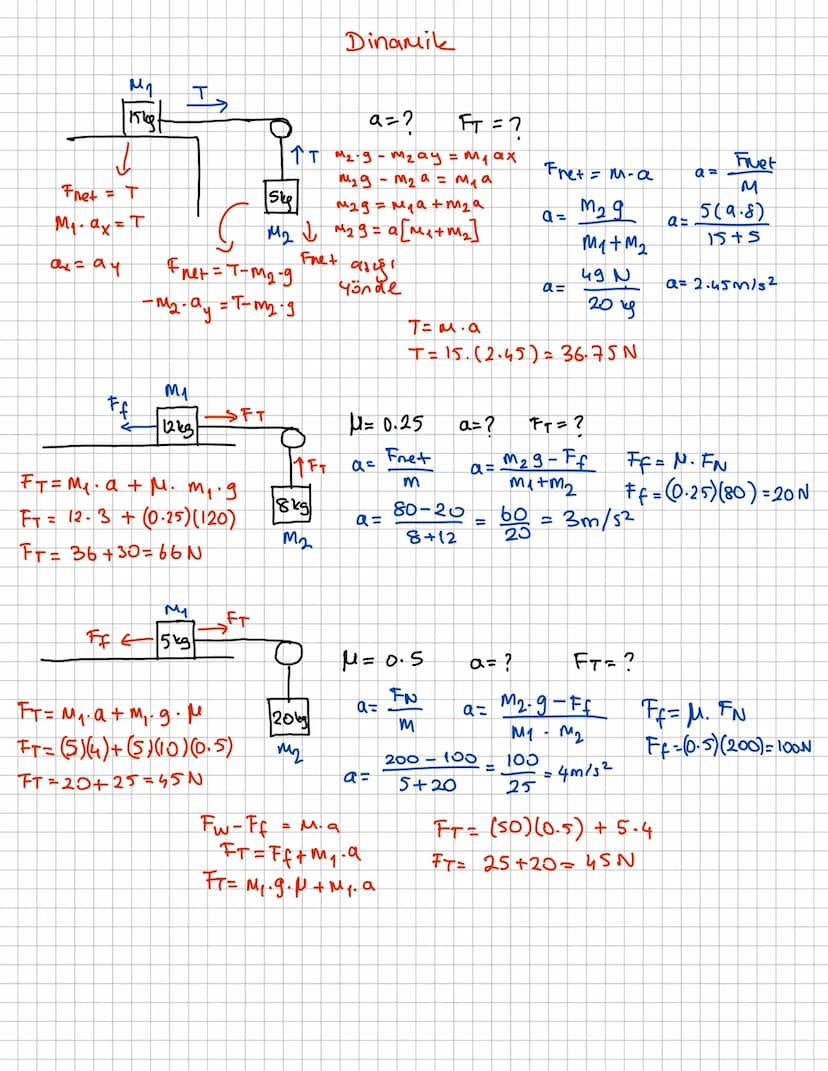 Dinamik
M1
T
15kg
a=?
FT=?
↑T
5kg
M2
Fnet = T
M1·ax=T
ax=ay
Fnet=T-m2·g
-M2·ay=T-m2·g
m2·g-m2ay=m1ax
m2g-m2a=m1a
m2g=m1a+m2a
m2g=a[m1+m2]
Fnet aşağı
yönde
Fnet=m·a
a=Fnet/M
a=M2g/M1+M2
a=5(9.8)/15+5
a=49N/20kg
a=2.45m/s²
T=m·a
T=15.(2.45)=36.75N
M1
Ff
12kg
→FT
↑FT
8kg
M2
μ=0.25
a=?
FT=?
a=Fnet/m
a=m2g-Ff/m1+m2
Ff=μ·FN
Ff=(0.25)(80)=20N
a=80-20/8+12=60/20=3m/s²
FT=M1·a+μ·m1·g
FT=12·3+(0.25)(120)
FT=36+30=66N
M1
Ff
5kg
FT
20kg
M2
μ=0.5
a=?
FT=?
a=FN/M
a=M2·g-Ff/M1·M2
Ff=μ.FN
Ff=(0.5)(200)=100N
a=200-100/5+20=100/25=4m/s²
FT=M1·a+m1·g·μ
FT=(5)(4)+(5)(10)(0.5)
FT=20+25=45N
Fw-Ff=m·a
FT=Ff+m1·a
FT=M1·g·μ+M1·a
FT=(50)(0.5)+5·4
FT=25+20=45N